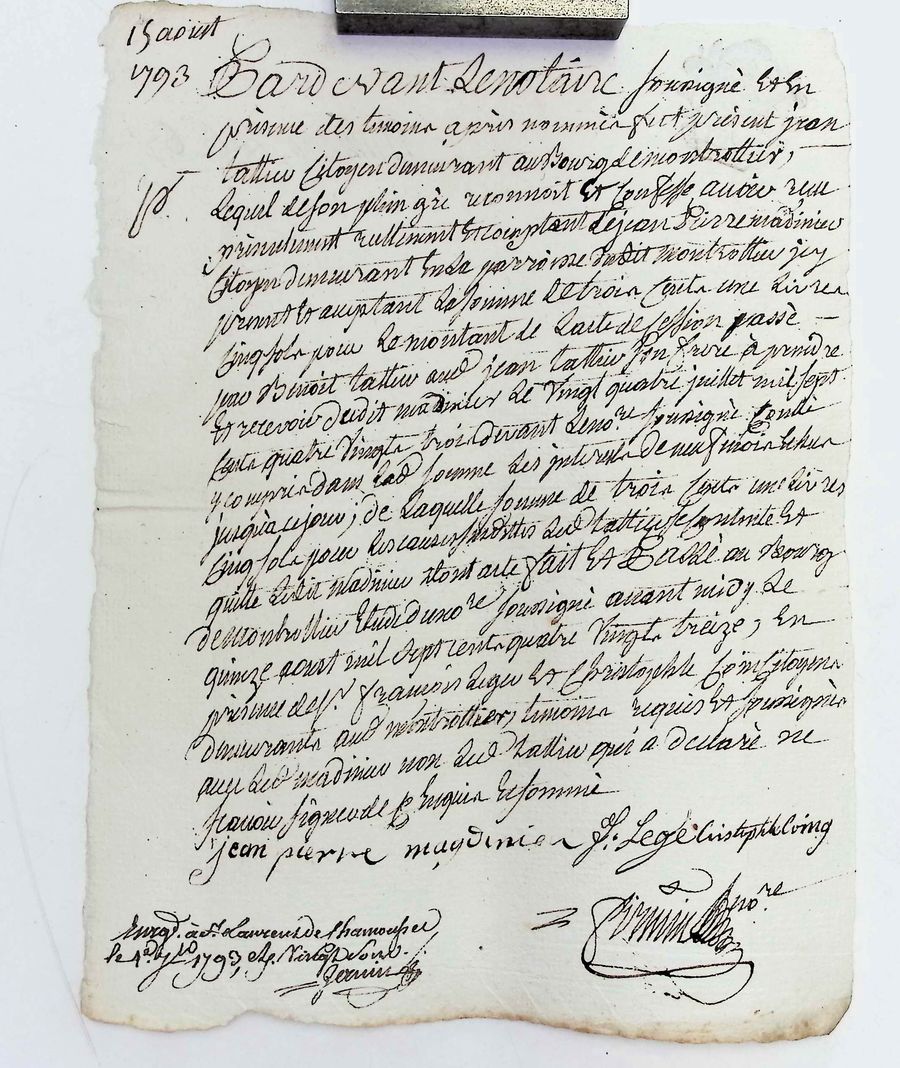 15 aoust
1793
Pardevant Lenotaire soussigné Et En
présence des temoins après nommés fut présent jean
tallieu Citoyen demeurant au Bourg de montrottier,
Lequel de son plein gré reconnoit Et Confesse avoir reçu
présentement réellement Et comptant de jean Pierre madinier
Citoyen demeurant En La parroisse dudit montrottier icy
présent Et acceptant La somme de trois Cents une Livres
Cinq sols pour Le montant de Lacte de Cession passé
par Benoit tallieu aud jean tallieu son frere à prendre
Et recevoir dudit madinier Le Vingt quatre juillet mil sept
Cents quatre Vingts trois devant Le nore soussigné
y compris dans Lad somme Les interets de neuf mois Echus
jusqua ce jour; de Laquelle somme de trois Cents une Livres
Cinq sols pour Les causes susdites Led tallieu se contente Et
quitte Ledit madinier dont acte fait Et Passé au Bourg
de Montrottier Etude du nore soussigné avant midy Le
quinze aoust mil sept cents quatre Vingts treize, En
présence de sr. françois Legé Et Christophle Coin Citoyens
demeurants aud montrottier, temoins requis Et soussignés
avec Led madinier non Led tallieu qui a declaré ne
scavoir signer de ce Enquis Et sommé
jean pierre magdinier fs. Legé Cristophle Coing
nore
Enregd. à St. Laurent de Chamousset
le 1793, Vingt sous.